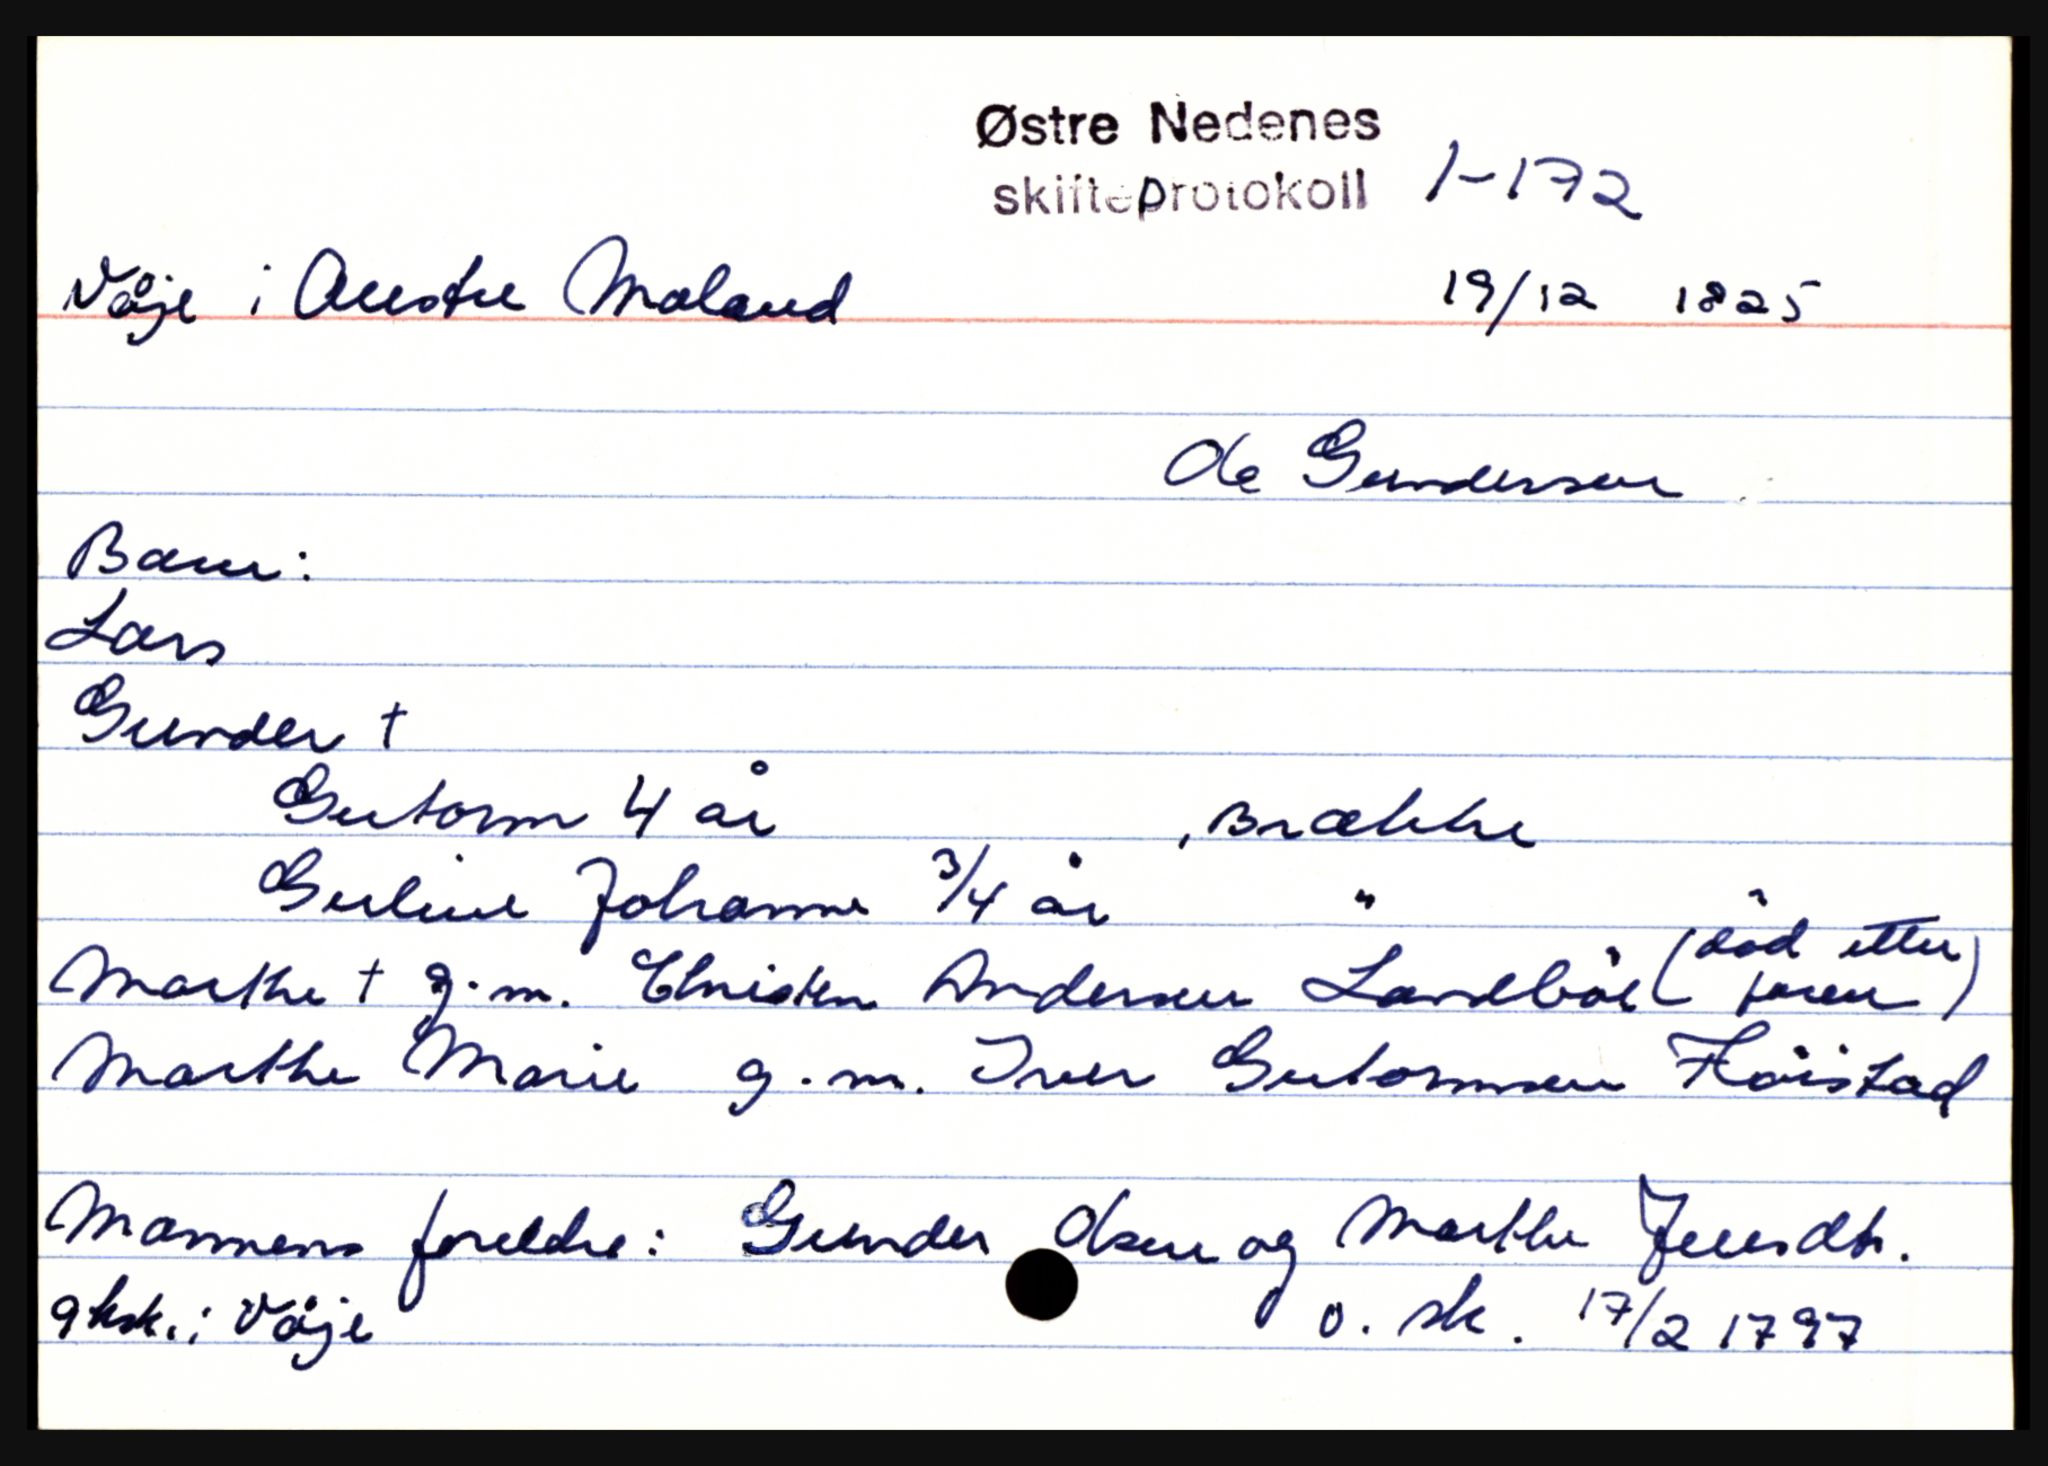 Østre Nedenes
skifteprotokoll 1-172
Våje i Austre Moland 19/12 1825
Ole Gundersen
Barn:
Lars
Gunder †
Gutorm 4 år , Brække
Guline Johanne 3/4 år "
Marthe † g.m. Christen Andersen Landbö (död etter faren)
Marthe Marie g.m. Iver Gutormsen Höistad
Mannens foreldre: Gunder Olsen og Marthe Jensdtr.
gksk. i Våje o. sk. 17/2 1797